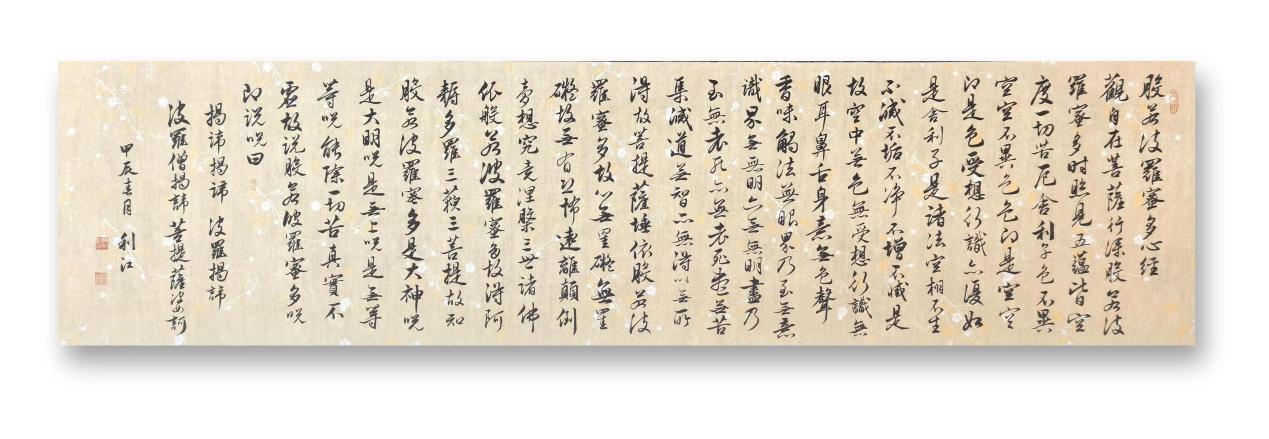 般若波羅蜜多心經
觀自在菩薩行深般若波
羅蜜多時照見五蘊皆空
度一切苦厄舍利子色不異
空空不異色色即是空空
即是色受想行識亦復如
是舍利子是諸法空相不生
不滅不垢不净不增不減是
故空中無色無受想行識無
眼耳鼻舌身意無色聲
香味觸法無眼界乃至無意
識界無無明亦無無明盡乃
至無老死亦無老死盡無苦
集滅道無智亦無得以無所
得故菩提薩埵依般若波
羅蜜多故心無罣礙無罣
礙故無有恐怖遠離顛倒
夢想究竟涅槃三世諸佛
依般若波羅蜜多故得阿
耨多羅三藐三菩提故知
般若波羅蜜多是大神呪
是大明呪是無上呪是無等
等呪能除一切苦真實不
虛故說般若波羅蜜多呪
即說呪曰
揭諦揭諦 波羅揭諦
波羅僧揭諦 菩提薩婆訶
甲辰春月 利江